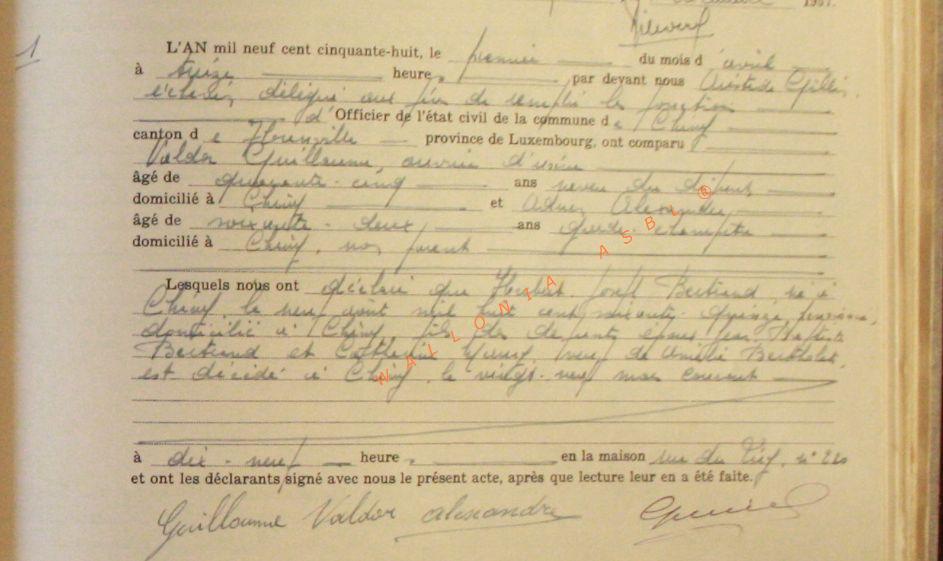 1907.
1
L'AN mil neuf cent cinquante-huit, le premier du mois d avril
à treize heure s par devant nous Aristide Gillet
échevin délégué aux fins de remplir les fonctions
d' Officier de l'état civil de la commune d e Chiny
canton d e Florenville province de Luxembourg, ont comparu
Valdor Guillaume, ouvrier d'usine
âgé de quarante-cinq ans neveu du défunt
domicilié à Chiny et Alexandre,
âgé de soixante-deux ans garde-champêtre
domicilié à Chiny, non parent
Lesquels nous ont déclaré que Hubert Joseph Bertrand, né à
Chiny, le neuf août mil huit cent soixante-quinze, pensionné,
domicilié à Chiny, fils des défunts époux Jean-Baptiste
Bertrand et Catherine veuf de Amélie Berthelet
est décédé à Chiny, le vingt-neuf mars courant
WALLONIA ASBL ®
à dix-neuf heure s en la maison rue du n° 220
et ont les déclarants signé avec nous le présent acte, après que lecture leur en a été faite.
Guillaume Valdor Alexandre